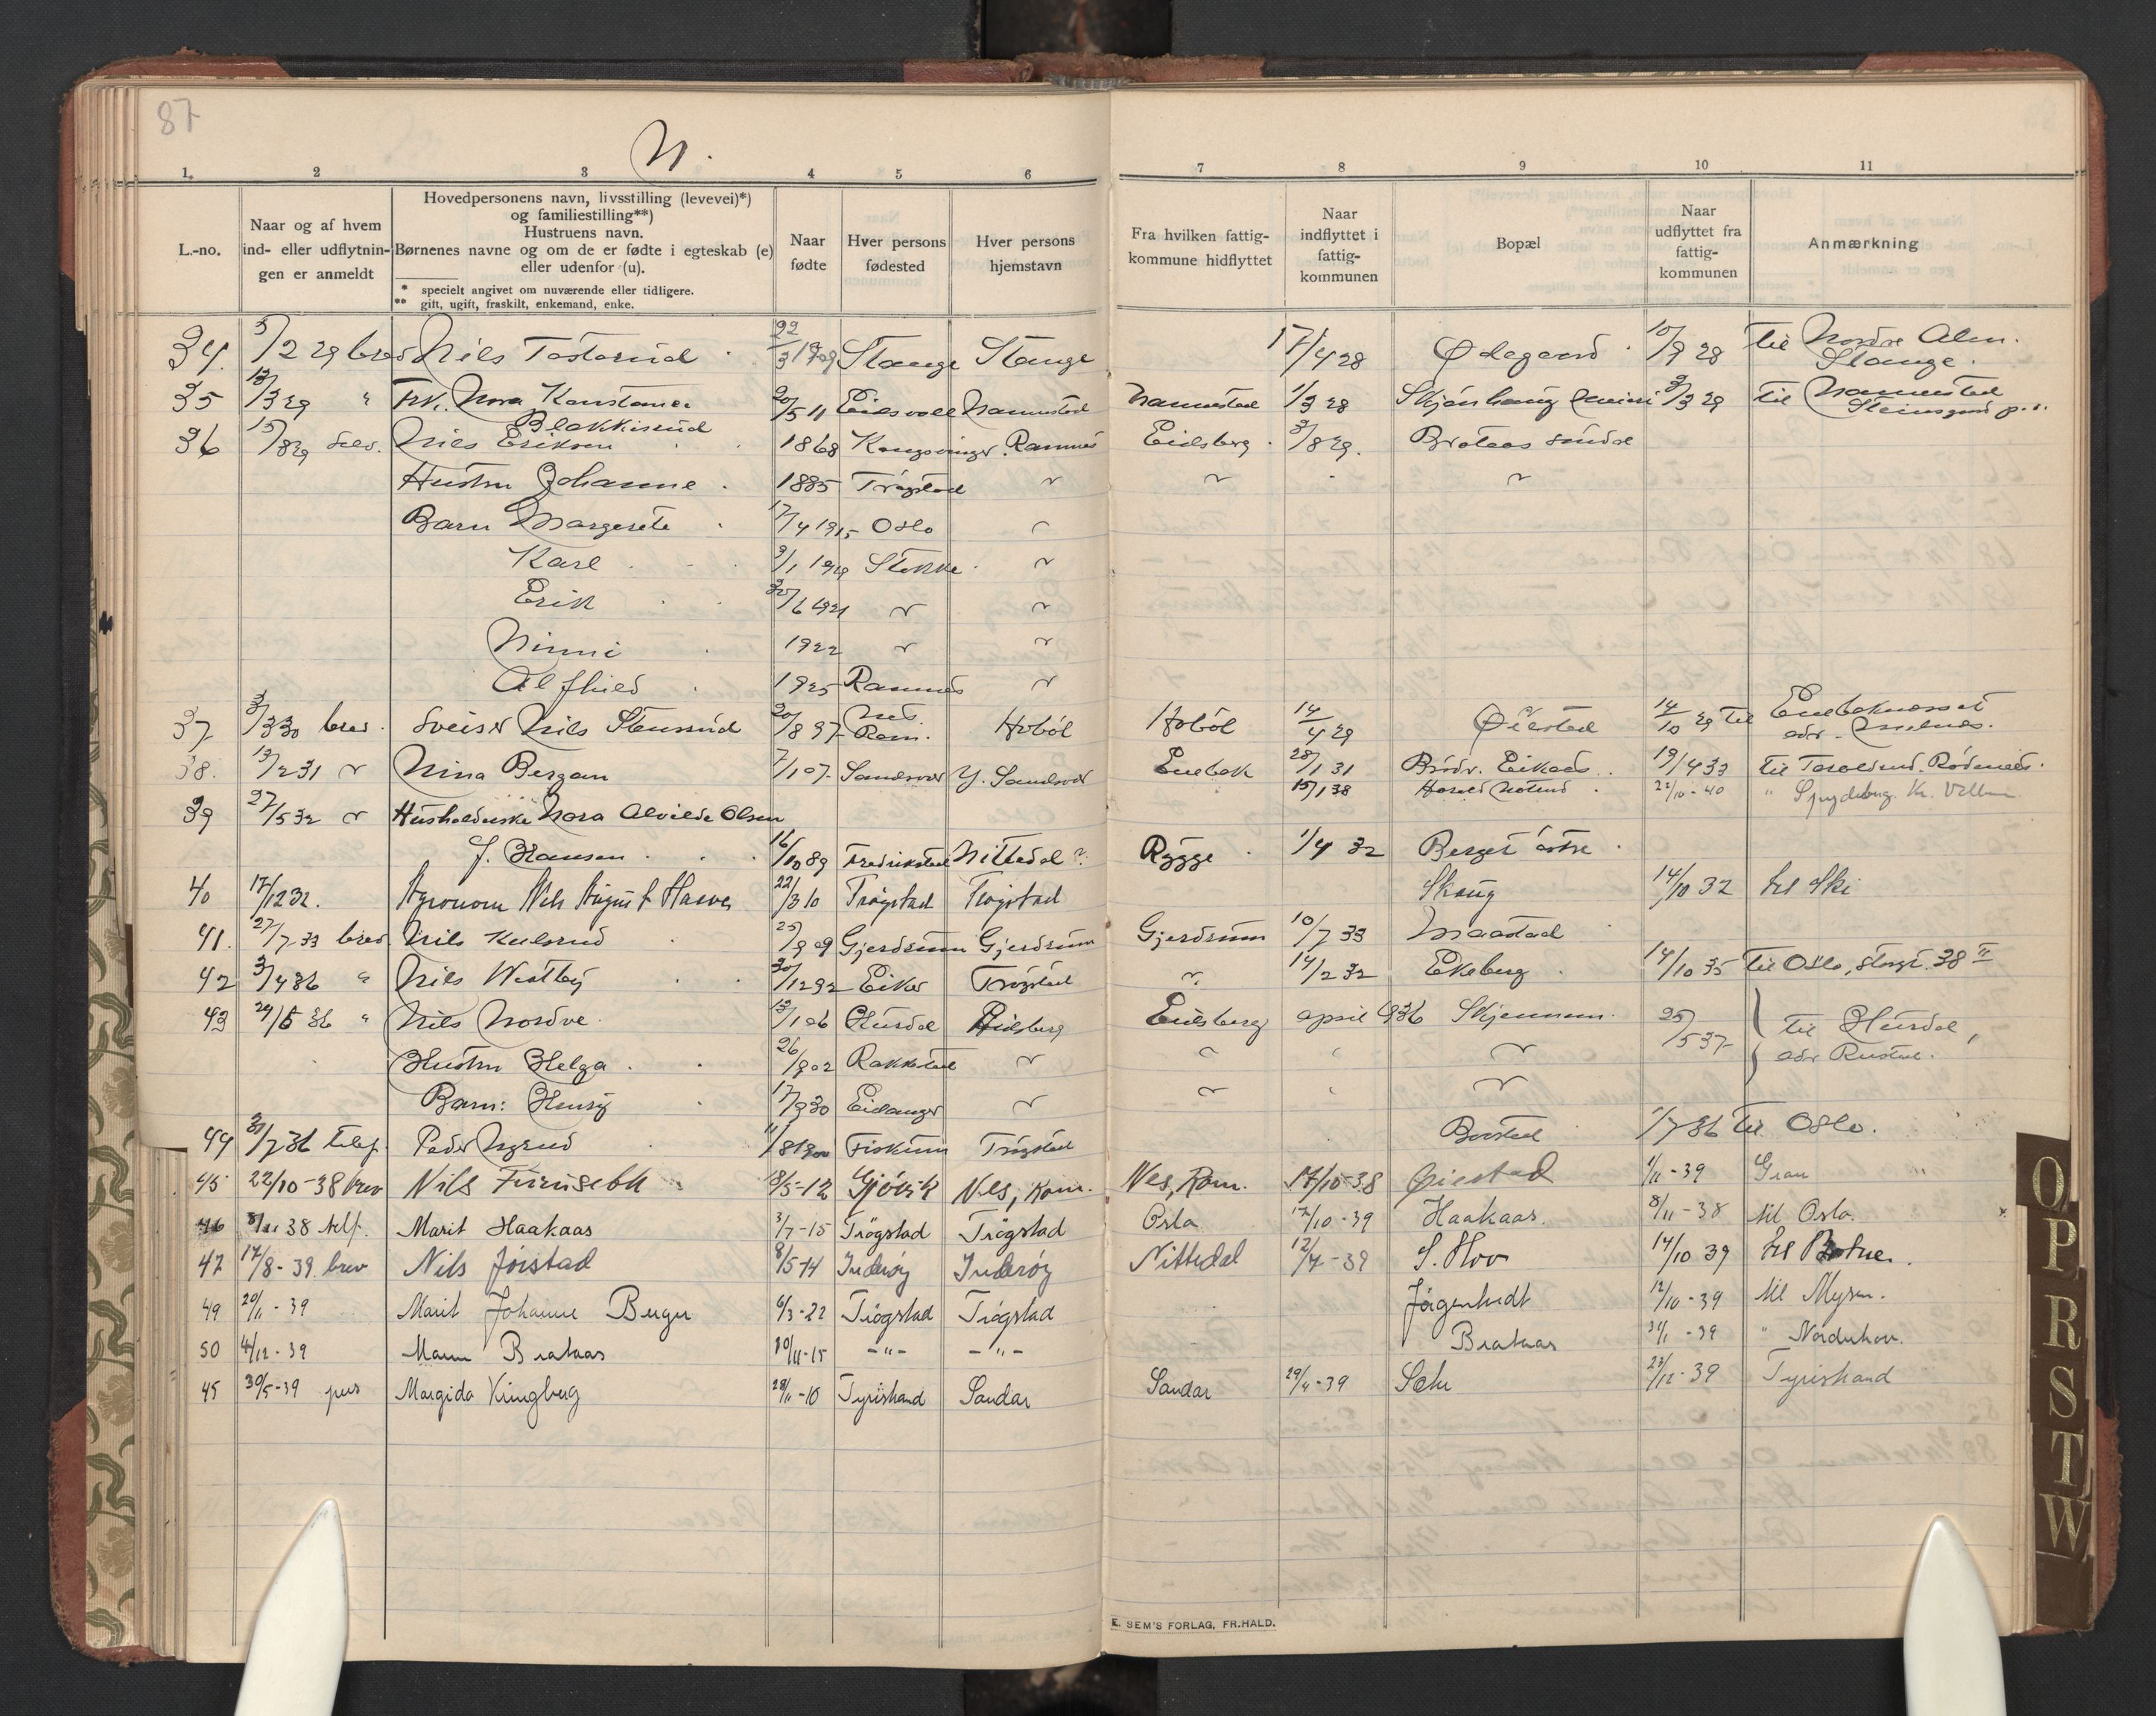 87
N.
1. 2 3 4 5 6 7 8 9 10 11
L.-no.
Naar og af hvem
ind- eller udflytnin-
gen er anmeldt
Hovedpersonens navn, livsstilling (levevei)*)
og familiestilling**)
Hustruens navn.
Børnenes navne og om de er fødte i egteskab (e)
eller udenfor (u).
* specielt angivet om nuværende eller tidligere.
** gift, ugift, fraskilt, enkemand, enke.
Naar
fødte
Hver persons
fødested
Hver persons
hjemstavn
Fra hvilken fattig-
kommune hidflyttet
Naar
indflyttet i
fattig-
kommunen
Bopæl
Naar
udflyttet fra
fattig-
kommunen
Anmærkning
34. 5/2 29 brev Nils Tostensrud 22/3 1909 Stange Stange 17/4 28 Ødegaard 10/9 28 til Nordre Alm.
Stange.
35 13/3 29 " Frk. Nora Konstanse 20/5 11 Eidsvoll Nannestad Nannestad 1/3 28 Skjønhaug 3/3 29 til Nannestad
Blekkisrud
36 15/8 29 Selv. Nils Eriksen 1868 Kongsvinger. Ramnes Eidsberg 3/8 29. Brataas søndre
Hustru Johanne 1885 Trøgstad " " "
Barn Margrete 17/4 1915 Oslo "
Karl 9/1 19 Stokke "
Erik 30/6 1921 " "
Ninni 1922 " "
Alfhild 1925 Ramnes "
37 3/3 30 brev. Sveiser Nils Stensrud 20/8 97 Nes. Rom. Hobøl Hobøl 14/4 29 Øiestad 14/10 29 til Enebakneset
adr.
38. 13/2 31 " Nina Bergan 7/1 07 Sandsvær Y. Sandsvær Enebak 28/1 31 Brødr. Eikaas 19/4 33 til Rødenes.
15/1 38 22/10-40 " Spydeberg.
39 27/5 32 " Husholderske Nora Alvilde Olsen
J. Hansen 16/10 89 Fredrikstad Nittedal? Rygge 1/4 32 Berget østre
40 17/12 32. Agronom Nils August Haave 22/3 10 Trøgstad Trøgstad Skaug 14/10 32 til Ski
41. 27/7 33 brev Nils Kulsrud 25/9 09 Gjerdrum Gjerdrum Gjerdrum 10/7 33 Maastad
42 3/4 36 " Nils Westby 30/12 92 Eiker Trøgstad " 14/2 32 Ekeberg 14/10 35 til Oslo, Storgt. 38 II
43 29/5 36 " Nils Nordve 13/1 06 Hurdal Eidsberg Eidsberg april 1936 Skjennem 25/5 37 til Hurdal,
Hustru Helga 26/9 02 Rakkestad " " " " adr Rustad.
Barn: Henry 17/9 30 Eidanger " " " "
44 30/7 36 telef. Peder Nyrud 11/8 1900 Fiskum Trøgstad Boestad 1/7 36 til Oslo.
45 22/10-38 brev Nils Furusebk 18/5-12 Gjövik Nes, Rom. Nes, Rom. 17/10-38 Øiestad 1/11-39 Gran
46 8/11 38 telf. Marit Haakaas 3/7-15 Trögstad Trögstad Oslo 17/10-39 Haakaas. 8/11-38 til Oslo.
47 17/8-39 brev Nils Jörstad 8/5-14 Inderöy Inderöy Nittedal 12/7-39 S. Hov 14/10 39 til Botne.
49 20/11-39 Marit Johanne Berger 6/3-22 Trögstad Trögstad Jörgentvedt 12/10-39 til Mysen.
50 4/12-39 Brataas 20/11-15 -"- -"- Brataas 30/11-39 " Norderhov.
45 30/5-39 pers Margida Kringberg 28/11-10 Tyristrand Sandar Sandar 29/4-39 23/12-39 Tyristrand
E. SEM'S FORLAG, FR.HALD.
O
P
R
S
T
W